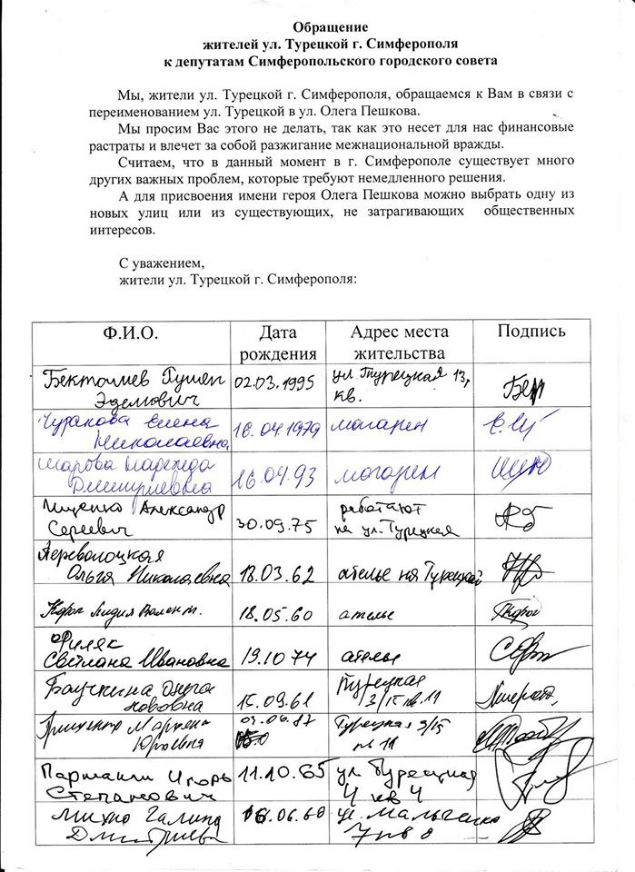 Обращение
жителей ул. Турецкой г. Симферополя
к депутатам Симферопольского городского совета
Мы, жители ул. Турецкой г. Симферополя, обращаемся к Вам в связи с
переименованием ул. Турецкой в ул. Олега Пешкова.
Мы просим Вас этого не делать, так как это несет для нас финансовые
растраты и влечет за собой разжигание межнациональной вражды.
Считаем, что в данный момент в г. Симферополе существует много
других важных проблем, которые требуют немедленного решения.
А для присвоения имени героя Олега Пешкова можно выбрать одну из
новых улиц или из существующих, не затрагивающих общественных
интересов.
С уважением,
жители ул. Турецкой г. Симферополя:
Ф.И.О. Дата Адрес места Подпись
рождения жительства
02.03.1995 ул Турецкая 13,
Эдемович кв.
Елена 16.04.1979 магазин
Николаевна
Надежда 16.04.93 магазин
Дмитриевна
Ищенко Александр работают
Сергеевич 30.09.75 на ул. Турецкая
Переволоцкая
Ольга Николаевна 18.03.62 ателье на Турецкой
Лидия 18.05.60 ателье
Филяк
Светлана Ивановна 19.10 74 ателье
15.09.61 Турецкая
3/15 кв. 11
Турецкая 3/15
Юрьевна кв 11
Игорь 11.10.65 ул. Турецкая
Степанович 4 кв 4
Михно Галина 06.60 ул.
Дмитриевна